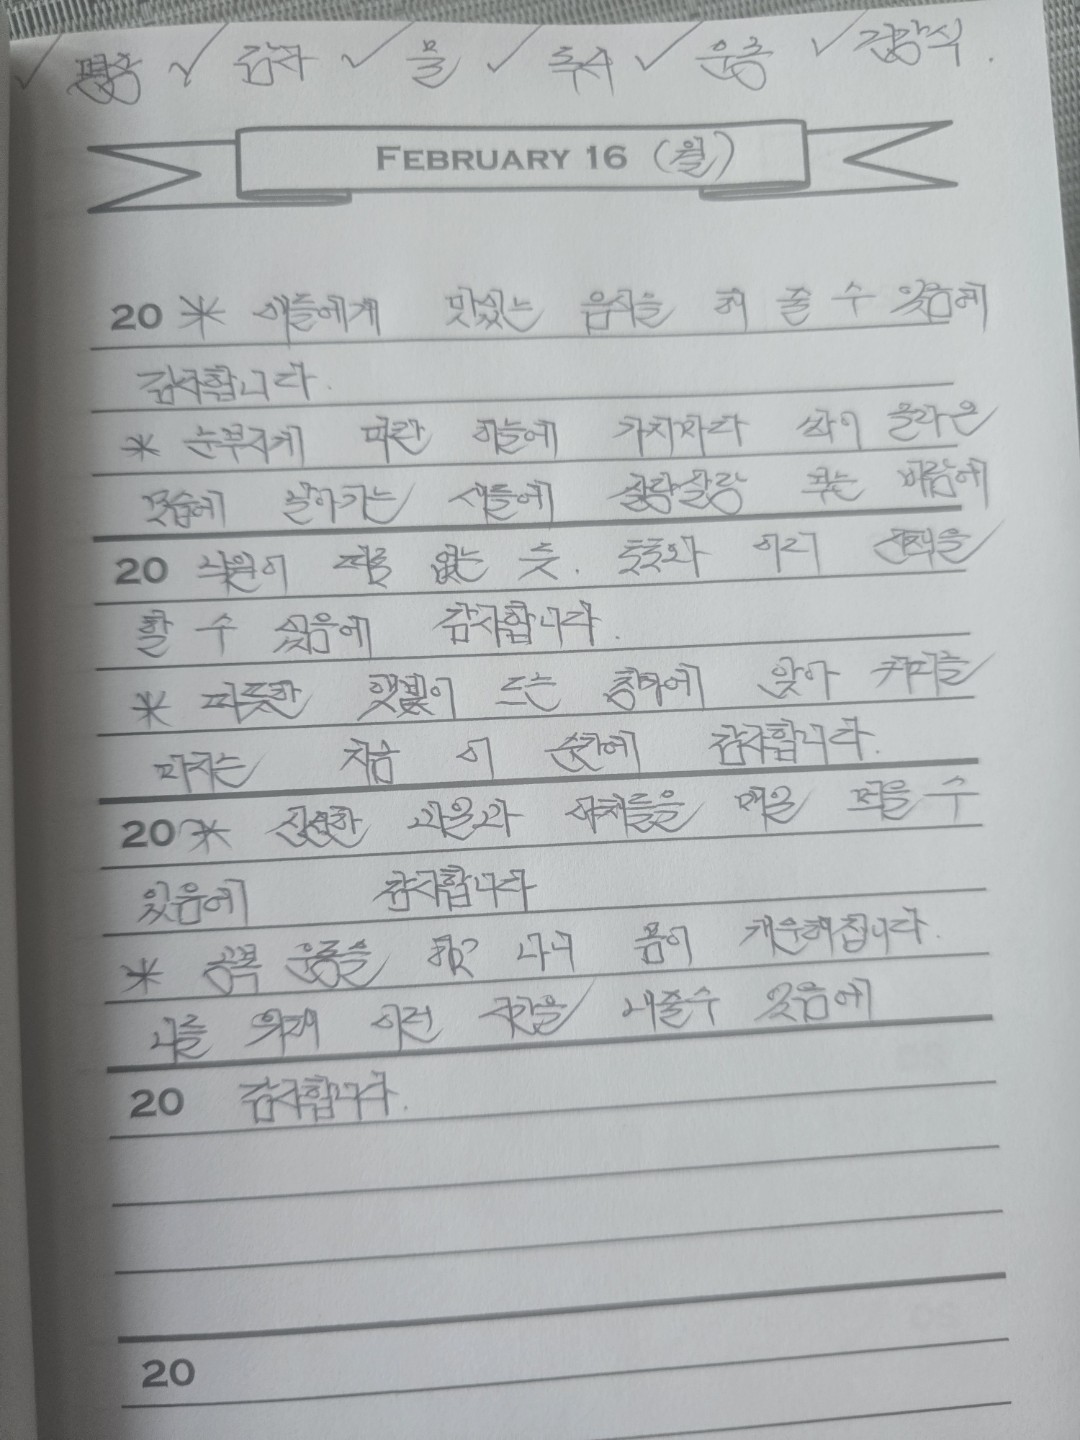 ✓ 명상 ✓ 감사 ✓ 물 ✓ 독서 ✓ 운동 ✓ 건강식.
FEBRUARY 16 (월)
20 * 애들에게 맛있는 음식을 해 줄 수 있음에
감사합니다.
* 눈부시게 파란 하늘에 가지마다 싹이 올라온
모습에 날아가는 새들에 살랑살랑 부는 바람에
20 부족함이 없는 듯. 산책을
할 수 있음에 감사합니다.
* 따뜻한 햇빛이 드는 창가에 앉아 커피를
마시는 지금 이 순간에 감사합니다.
20 * 신선한 과일과 야채들을 매일 먹을 수
있음에 감사합니다
* 공복 운동을 하고 나니 몸이 개운해집니다.
나를 위해 이런 시간을 내줄수 있음에
20 감사합니다.
20